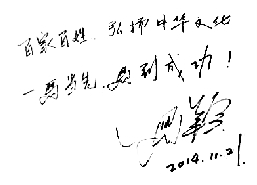 百家百姓、弘扬中华文化
一马当先、马到成功！
2014.11.21.